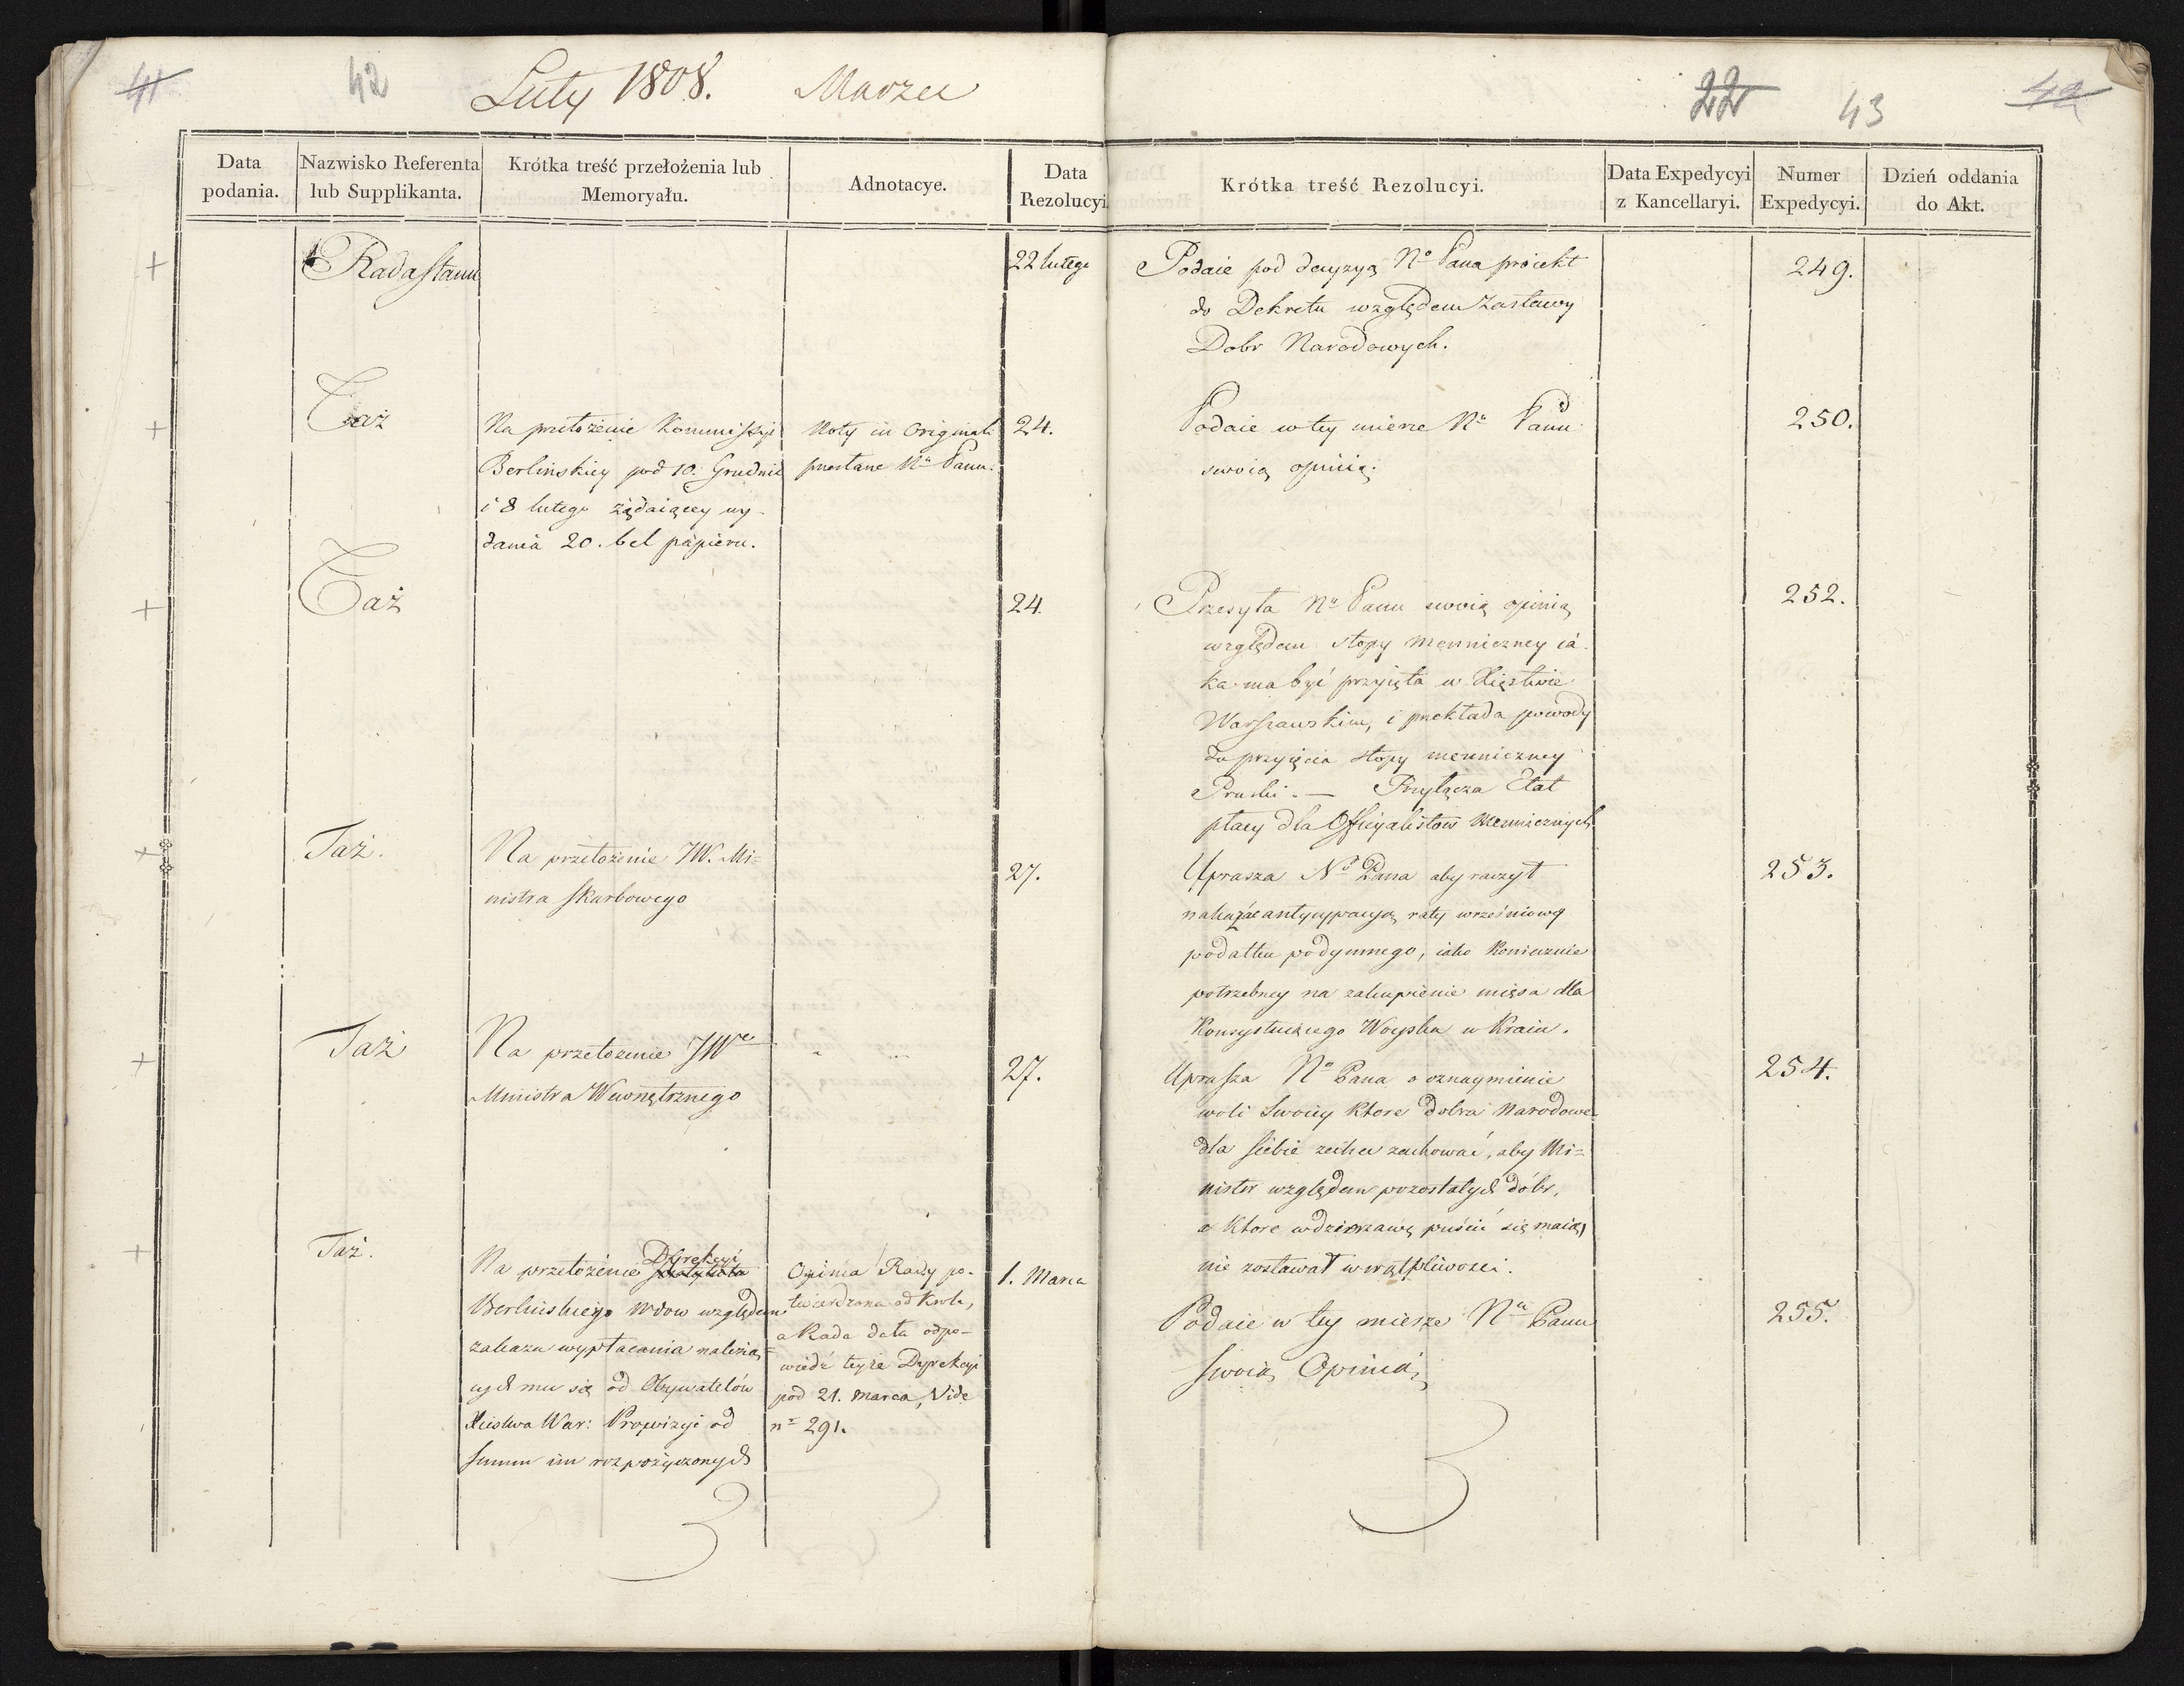 41 42 Luty 1808. Marzec
22 43 42
Data podania.
Nazwisko Referenta lub Supplikanta.
Krótka treść przełożenia lub Memoryału.
Adnotacye.
Data Rezolucyi
Krótka treść Rezolucyi.
Data Expedycyi z Kancellaryi.
Numer Expedycyi.
Dzień oddania do Akt.
Rada Stanu
22 lutego
Podaie pod decyzyą Nº Pana proiekt
do Dekretu względem Zastawy
Dobr Narodowych.
249.
Taż
Na przełożenie Kommissyi
Berlińskiey pod 10. Grudnia
i 8 lutego żądaiącey wy-
dania 20. bel papieru.
Noty in Originali
przesłane Nu Panu.
24.
Podaie w tey mierze Nu Panu
swoią opinią.
250.
Taż
24.
Przesyła Nu Panu swoią opinią
względem stopy menniczney ia-
ka ma być przyięta w Xięstwie
Warszawskim, i przekłada powody
do przyięcia stopy menniczney
Pruski. — Przyłącza Etat
płacy dla Officyalistow Menniczych
252.
Taż.
Na przełożenie JW. Mi=
nistra Skarbowego
27.
Uprasza Nº Pana aby raczył
nakazać antycypacyą raty wrześniowey
podatku podymnego, iako koniecznie
potrzebney na zakupienie mięsa dla
Konsystuiącego Woyska w Kraiu.
253.
Taż
Na przełożenie JWº
Ministra Wewnętrznego
27.
Uprasza Nº Pana o oznaymienie
woli Swoiey ktore dobra Narodowe
dla siebie zechce zachować, aby Mi=
nister względem pozostałych dóbr,
a ktore w dzierzawę puścić się maią,
nie zostawał w wątpliwosci.
254.
Taż.
Na przełożenie Dyrekcyi
Berlińskiego Wdow względem
zakazu wypłacania należą=
cych mu się od Obywatelów
Xięstwa War: Prowizyi od
summ im rozpożyczonych
Opinia Rady po-
twierdzona od Krola,
a Rada dała odpo-
wiedź teyże Dyrekcyi
pod 21. Marca, Vide
nº 291.
1. Marca
Podaie w tey mierze Nu Panu
swoią Opinią
255.